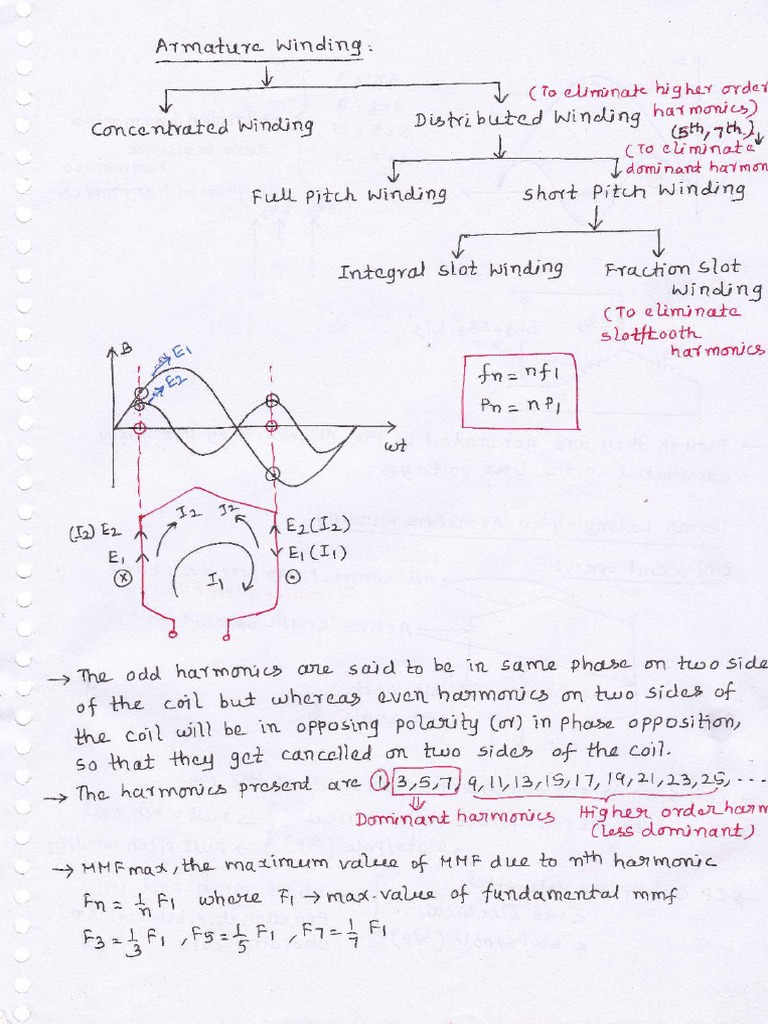 Armature Winding:
(To eliminate higher order
harmonics)
Concentrated Winding
Distributed Winding
(5th, 7th)
(To eliminate
dominant harmon
Full Pitch Winding
Short Pitch Winding
Integral Slot Winding
Fraction Slot
Winding
(To eliminate
slot/tooth
harmonics
B
E1
E2
ωt
fn = nf1
Pn = nP1
(I2) E2
I2
I2
E2(I2)
E1
E1(I1)
I1
→ The odd harmonics are said to be in same phase on two side
of the coil but whereas even harmonics on two sides of
the coil will be in opposing polarity (or) in phase opposition,
so that they get cancelled on two sides of the coil.
→ The harmonics present are 1, 3, 5, 7, 9, 11, 13, 15, 17, 19, 21, 23, 25, ...
Dominant harmonics
Higher order harm
(less dominant)
→ MMFmax, the maximum value of MMF due to nth harmonic
Fn = 1/n F1 where F1 → max. value of fundamental mmf
F3 = 1/3 F1, F5 = 1/5 F1, F7 = 1/7 F1